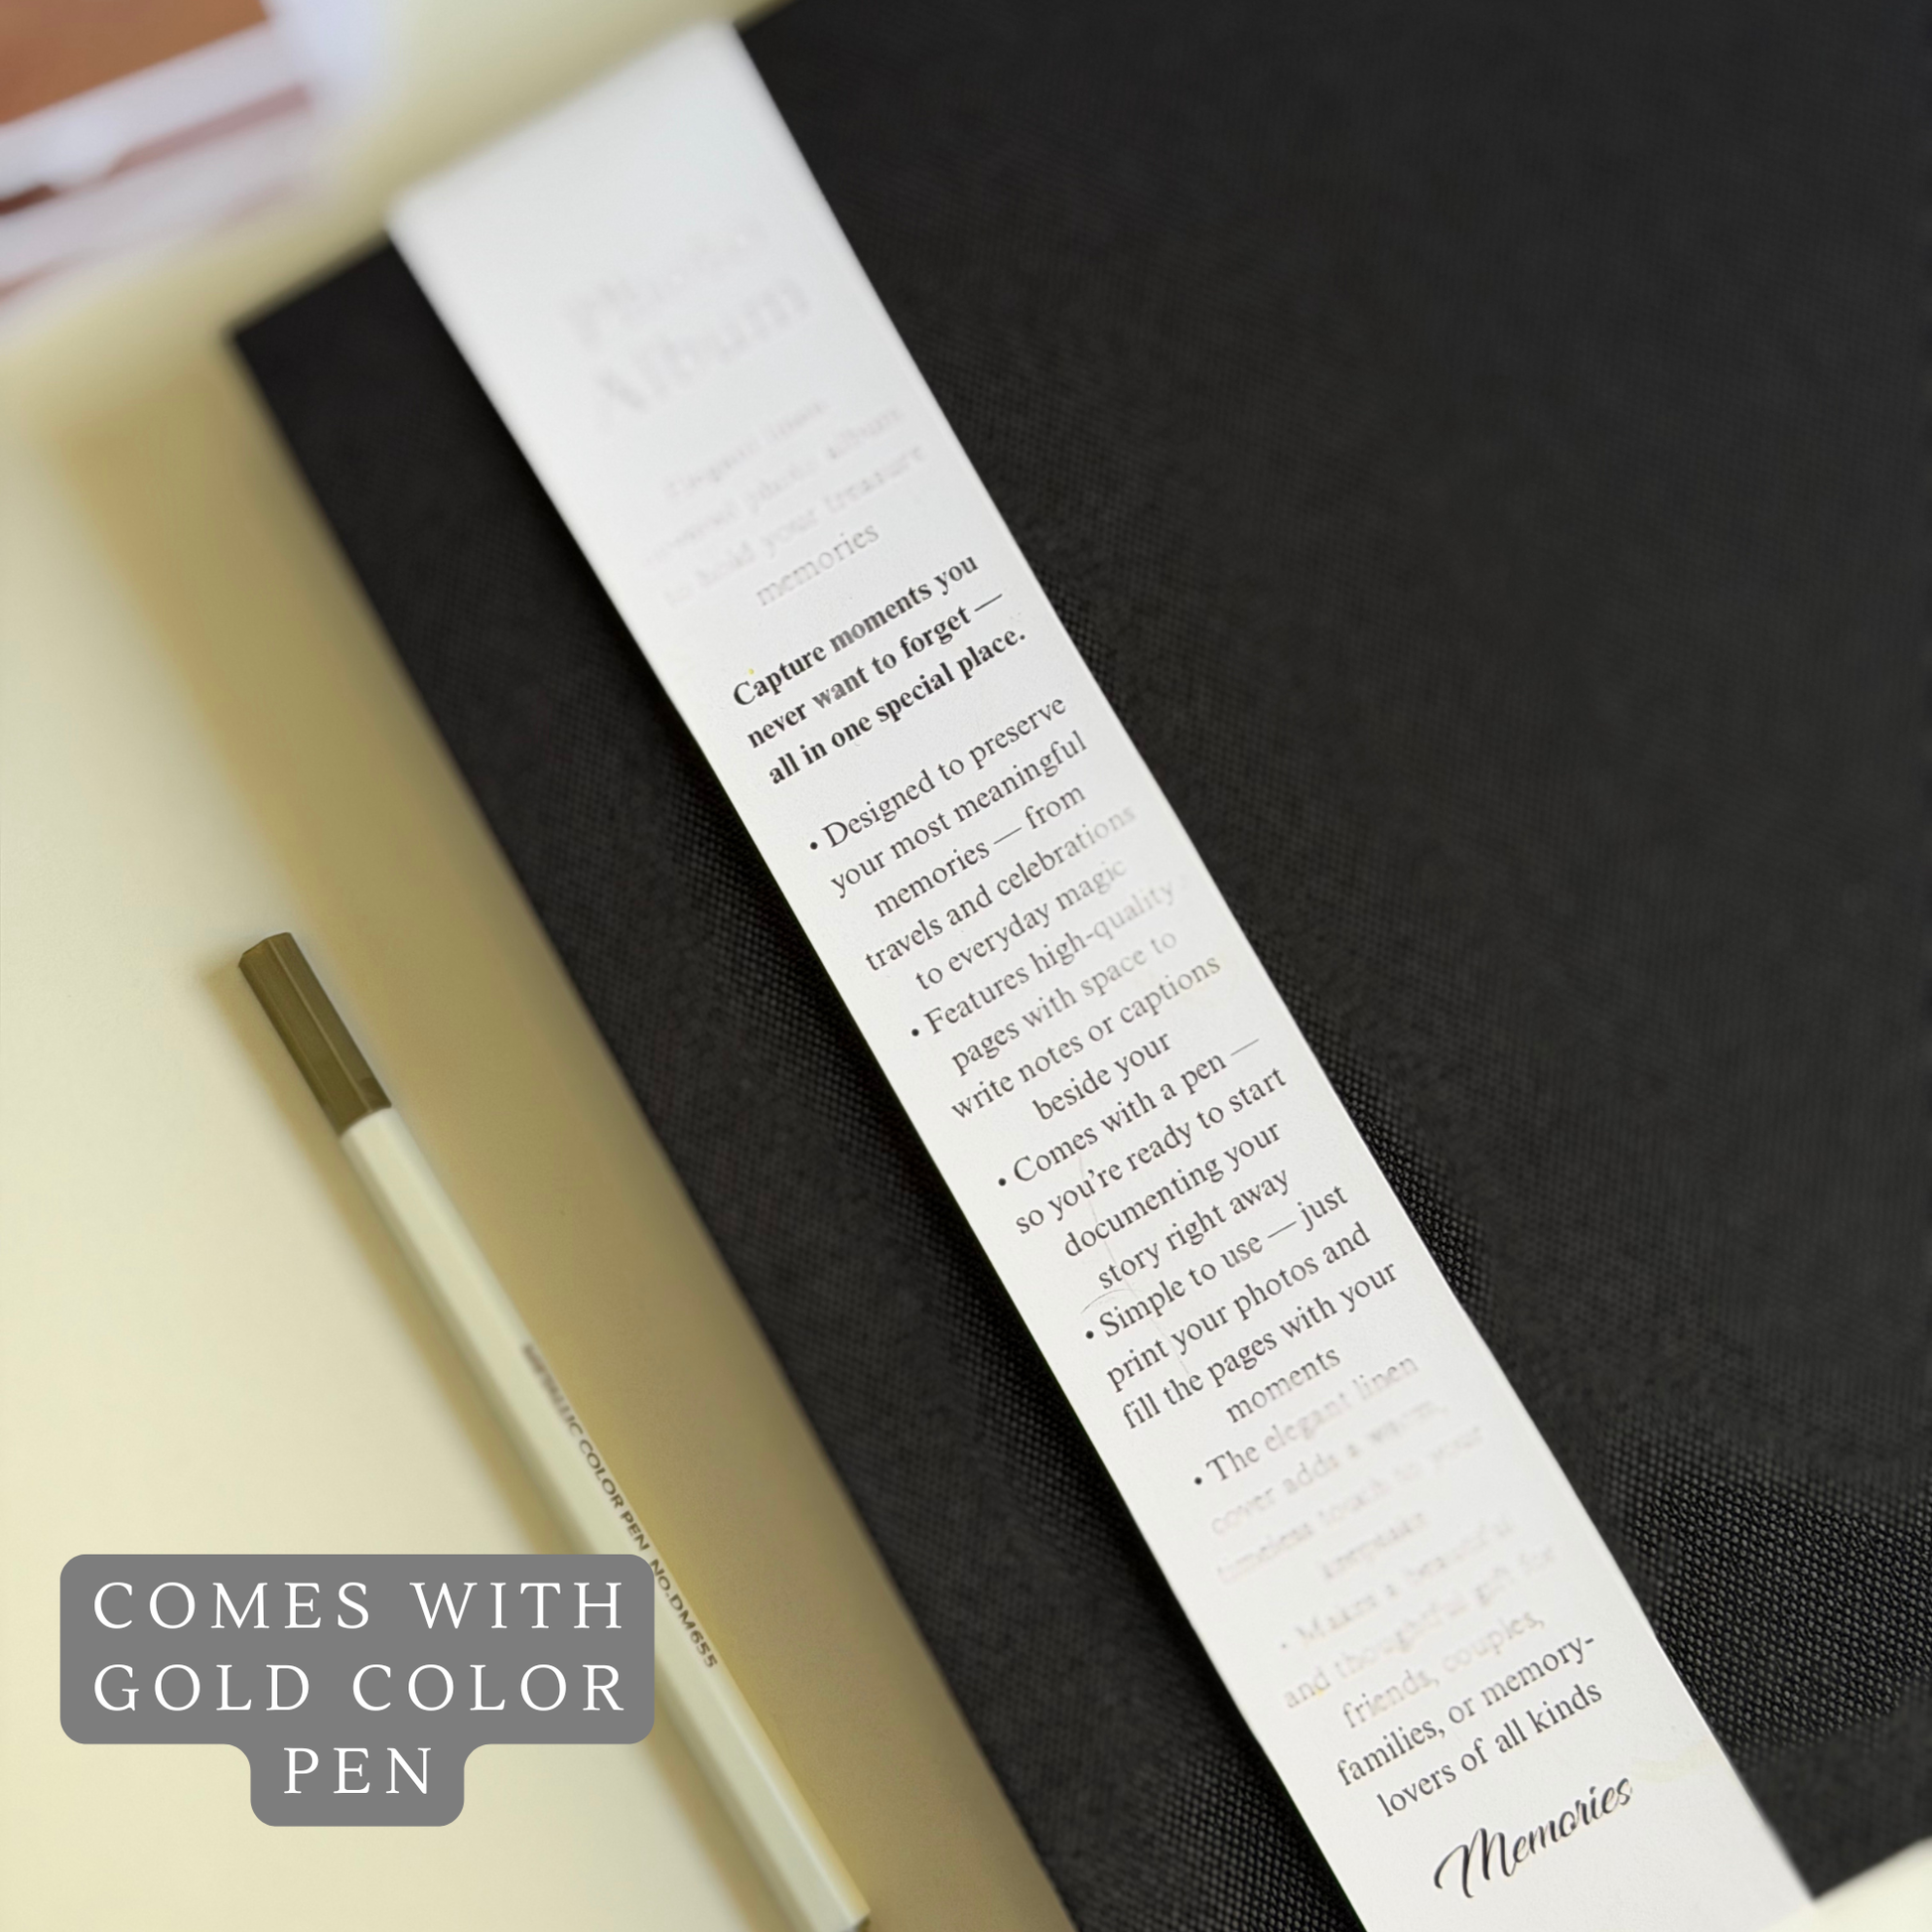 Photo
Album
Elegant linen
photo album
to hold your treasure
memories
Capture moments you
never want to forget —
all in one special place.
• Designed to preserve
your most meaningful
memories — from
travels and celebrations
to everyday magic
• Features high-quality
pages with space to
write notes or captions
beside your
• Comes with a pen —
so you're ready to start
documenting your
story right away
• Simple to use — just
print your photos and
fill the pages with your
moments
• The elegant linen
cover adds a warm,
timeless touch to your
keepsake
• Makes a beautiful
and thoughtful gift for
friends, couples,
families, or memory-
lovers of all kinds
Memories
METALLIC COLOR PEN NO.DM655
COMES WITH
GOLD COLOR
PEN